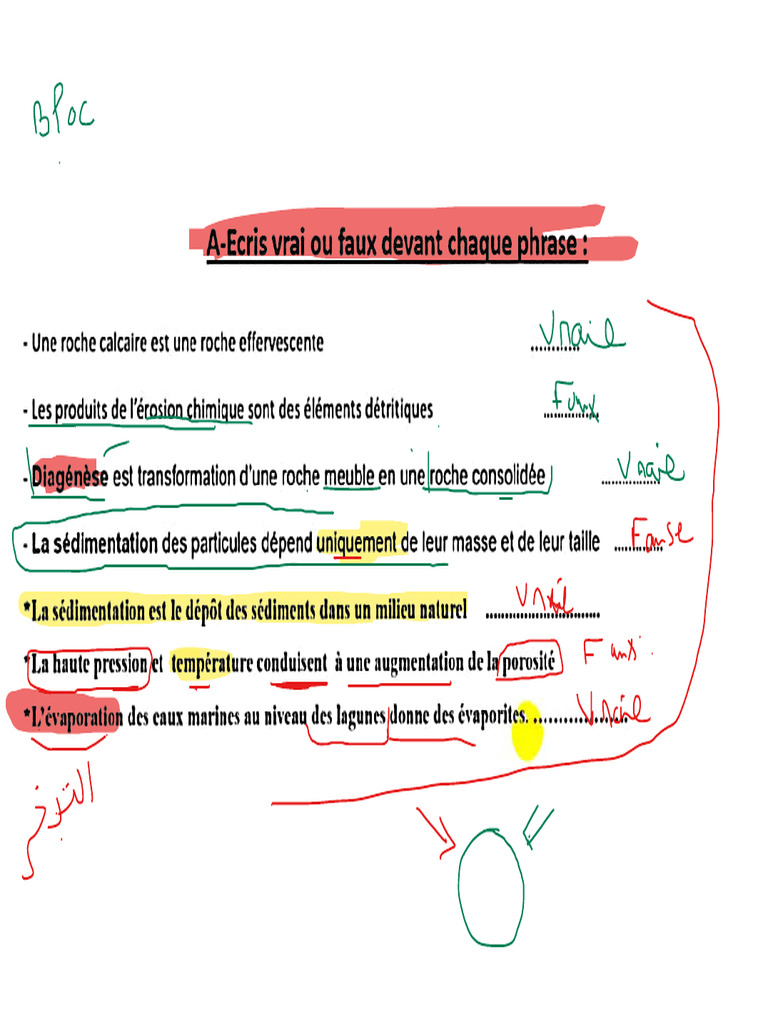 Bloc
A-Ecris vrai ou faux devant chaque phrase :
- Une roche calcaire est une roche effervescente ............ Vraie
- Les produits de l'érosion chimique sont des éléments détritiques ............ Faux
- Diagénèse est transformation d'une roche meuble en une roche consolidée ............ Vraie
- La sédimentation des particules dépend uniquement de leur masse et de leur taille ............ Fause
*La sédimentation est le dépôt des sédiments dans un milieu naturel ............................
*La haute pression et température conduisent à une augmentation de la porosité Faux.
*L'évaporation des eaux marines au niveau des lagunes donne des évaporites. ..................... Vraie
التبخر